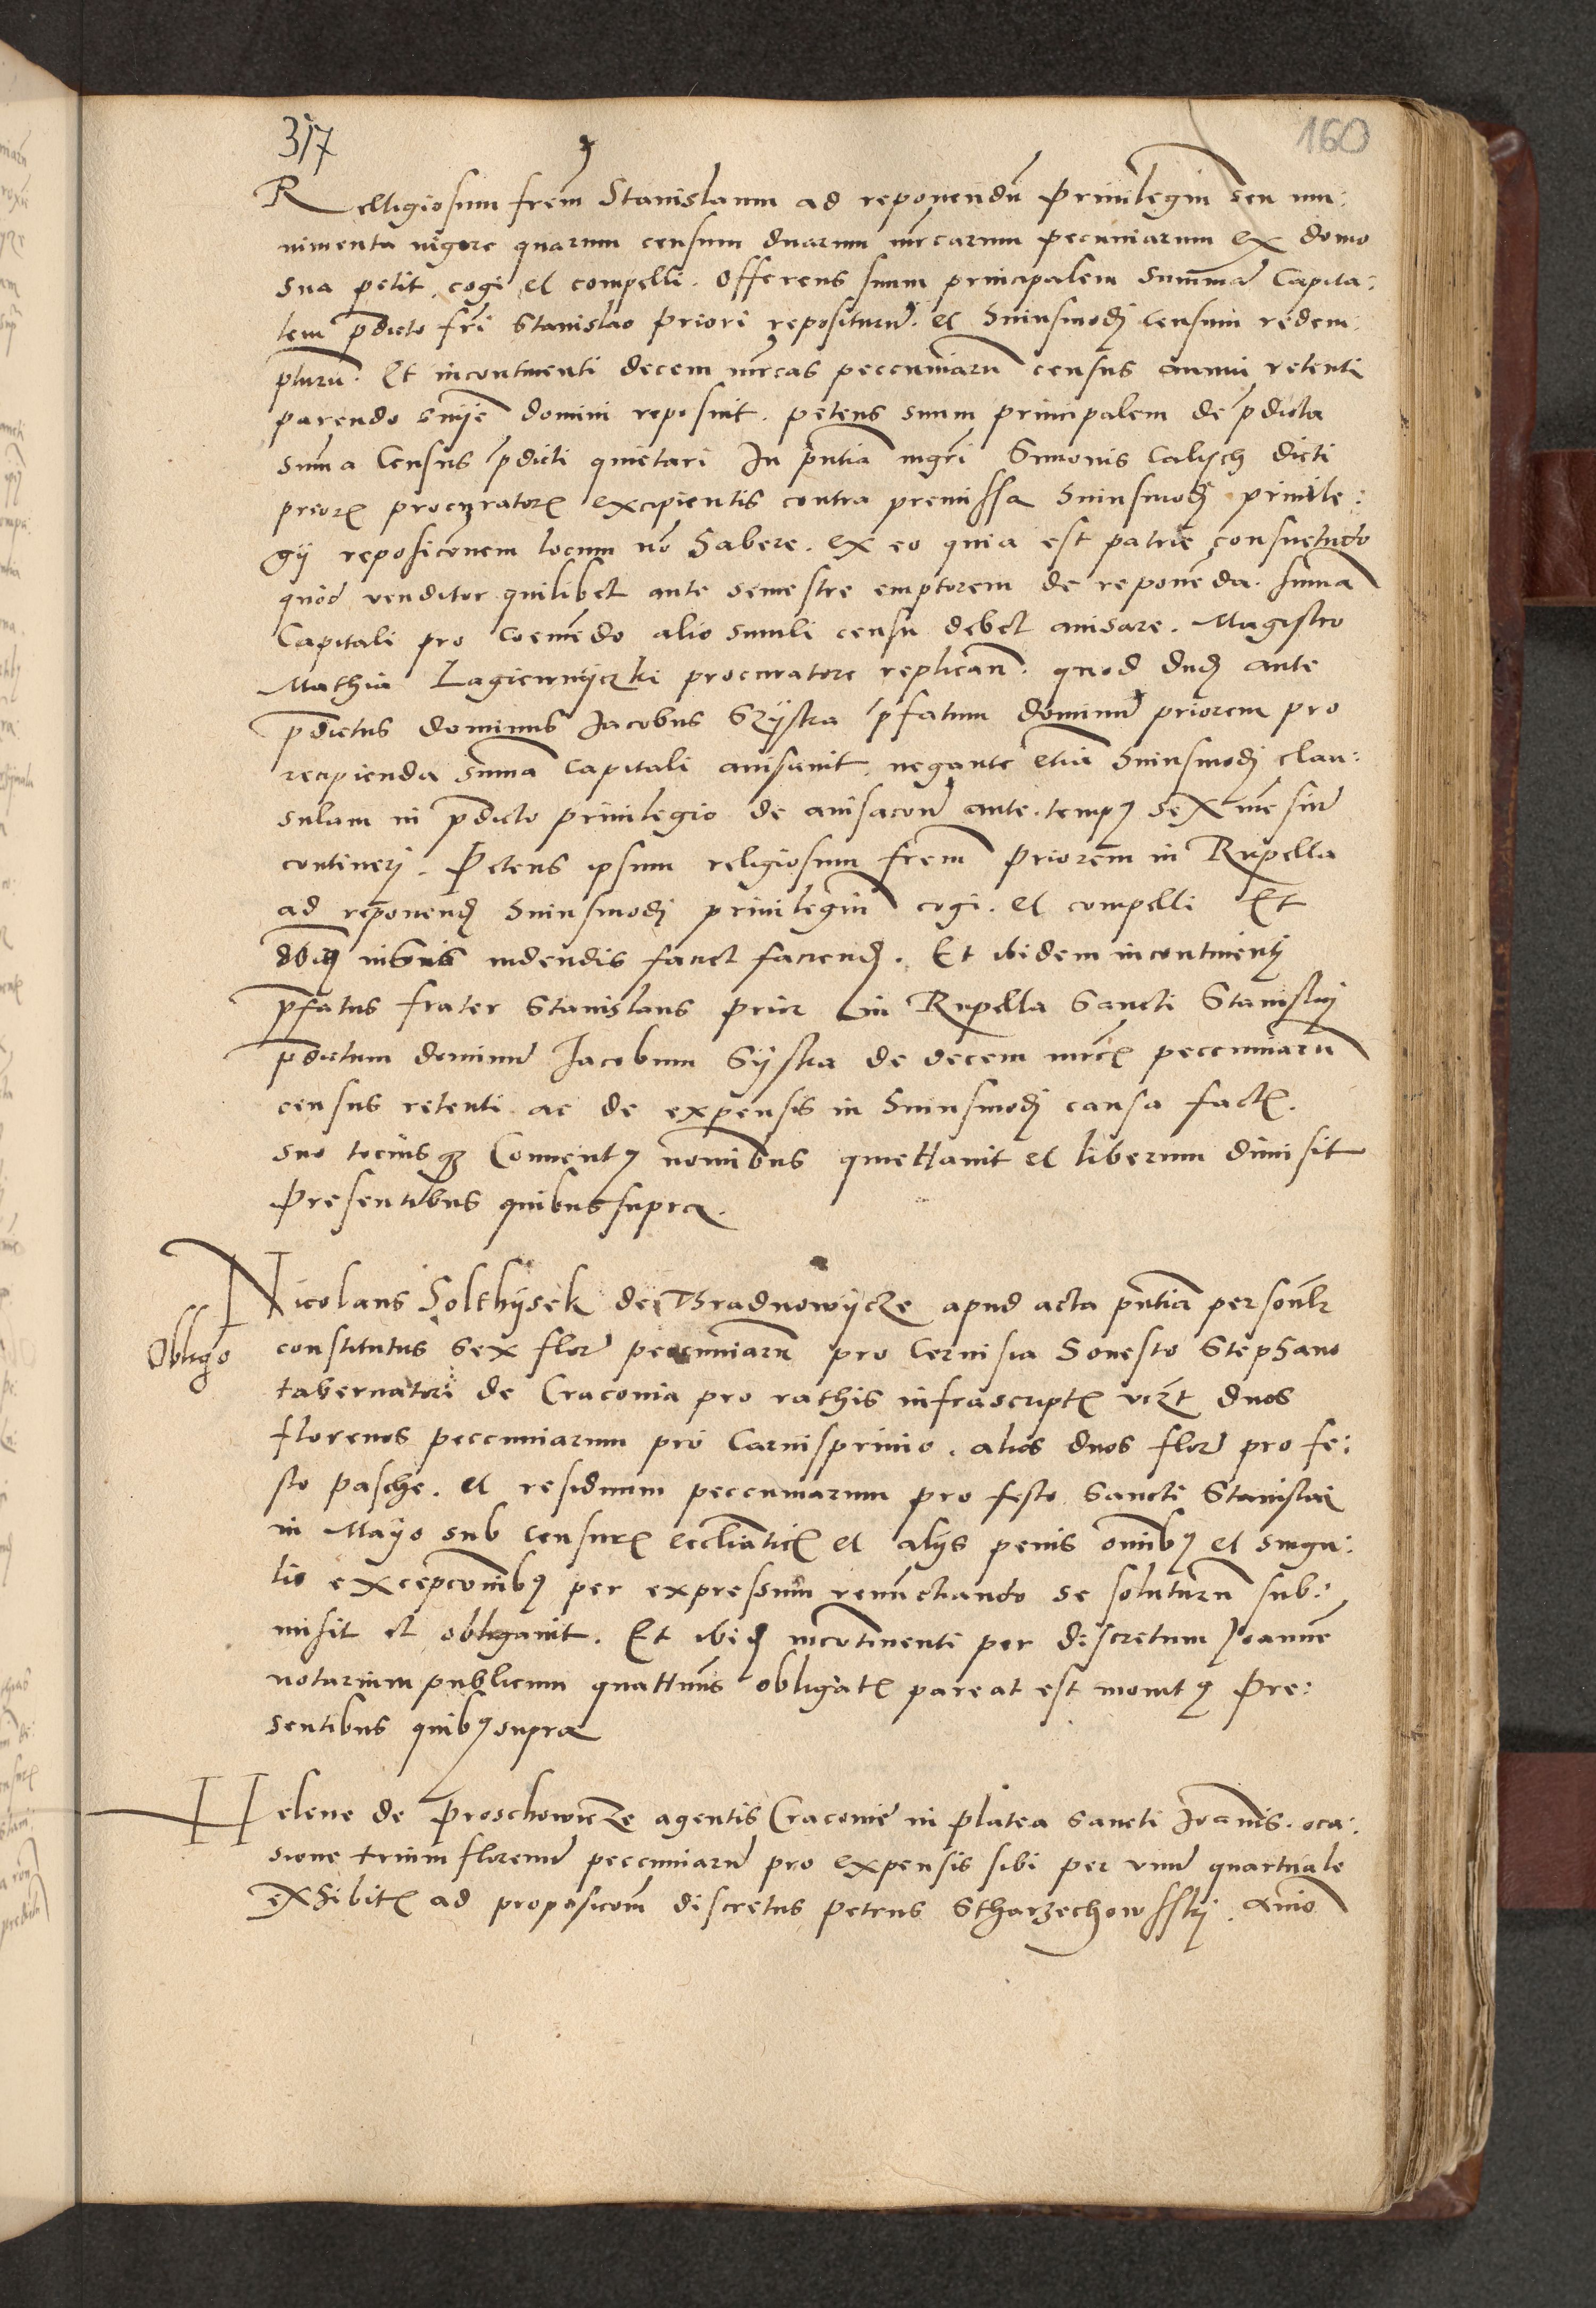 317
160
Relligiosum frem Stanislaum ad reponendu Privilegiu seu mu:
nimenta vigore quarum censum duarum mrcarum pecuniarum ex domo
sua petit cogi et compelli. Offerens suum principalem Summa Capita:
lem pdicto fri Stanislao Priori repositurum. et huiusmodi censum redem:
pturu. Et incontinenti decem mrcas peccuniaru census annui retenti
parendo snije domini reposuit. petens suum principalem de pdicta
suma Census pdicti quietari In pntia mgri Simonis Calisch dicti
prioris procuratoris excipientis contra premissa huiusmodi privile:
gii reposiconem locum no habere. ex eo quia est patrie consuetudo
quod venditor quilibet ante semestre emptorem de reponenda. suma
Capitali pro coemendo alio simili censu debet avisare. Magistro
Mathia Lagiewnyczki procuratore replican. quod dud ante
pdictus dominus Jacobus Szystra pfatum dominum priorem pro
recipienda suma capitali avisavit. negante etia huiusmodi clau:
sulam in pdicto privilegio de avisacone ante tempus sex mesiu
contineri. Petens ipsum religiosum frem Priorem in Rupella
ad reponend huiusmodi privilegiu cogi. et compelli Et
videndis facienda. Et ibidem incontinenti
pfatus frater Stanislaus prior in Rupella Sancti Stanislai
pdictum dominum Jacobum Systra de decem mrcis peccuniaru
census retenti ac de expensis in huiusmodi causa factis.
suo tociusque Conventus nomibus quiettavit et liberum dimisit
Presentibus quibus supra.
Nicolaus Solthysek de Gradnowycze apud acta pntia personalr
Obligo
constitutus sex flor peccuniaru pro Cervisia honesto Stephano
tabernatori de Cracovia pro rathis infrascriptis vczt duos
florenos peccuniarum pro Carnisprivio. alios duos flor pro fe:
sto pasche. et residuum peccuniarum pro festo Sancti Stanislai
in Mayo sub censuris eccliaticis et alijs penis omnibus et singu:
lis excepconibus per expressum renunctiando se soluturu sub:
misit et obligavit. Et ibidem incotinenti per discretum Joanne
notarium publicum quattinus obligatis pareat est monitus Pre:
sentibus quibus supra
Helene de Proschowicze agentis Cracovie in platea sancti Joannis. oca:
sione trium florenoru peccuniaru pro expensis sibi per unu quartuale
exhibitis ad proposicom discretus petrus Stharzechowssky. Anno